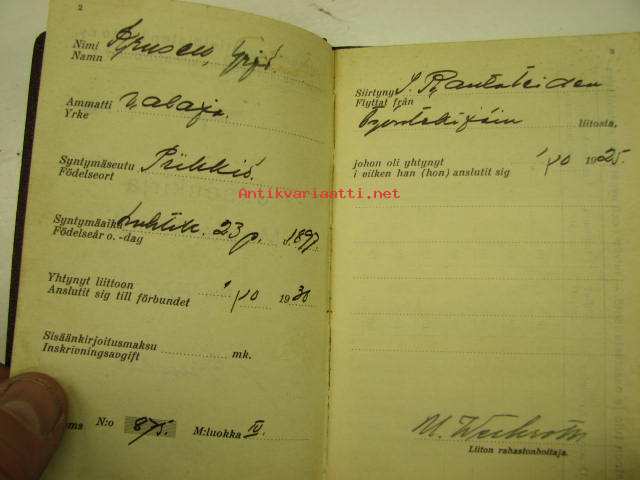 2
Nimi
Namn
Yrjö.
Ammatti
Yrke
valaja.
Syntymäseutu
Födelseort
Piikkiö.
Syntymäaika huhtik. 23 p. 1897
Födelseår o. -dag
Yhtynyt liittoon
Anslutit sig till förbundet 1/10 1930
Sisäänkirjoitusmaksu
Inskrivningsavgift mk.
N:o 875. M:luokka IV.
3
Siirtynyt S. Rautateiden
Flyttat från
liitosta,
johon oli yhtynyt
i vilken han (hon) anslutit sig 1/10 1925
Liiton rahastonhoitaja.
Antikvariaatti.net